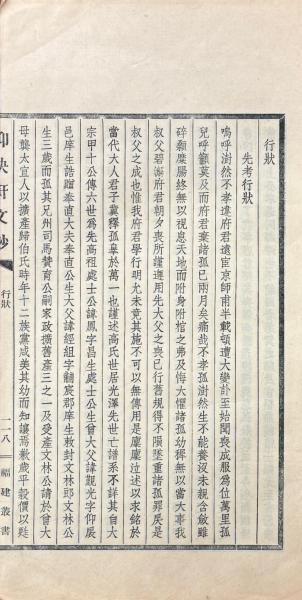 行狀
先考行狀
嗚呼澍然不孝違府君遠宦京師甫半載頓遭大變訃至始聞喪成服爲位萬里孤
兒呼籲莫及而府君棄諸孤已兩月矣痛哉不孝孤澍然生不能養沒未親含斂雖
碎顙糜腸終無以視息天地而附身附棺之弗及悔大懼諸孤幼稚無以當大事我
叔父碧澥府君朝夕喪所謹遵用先大父之喪已行舊規得不隕墜重諸孤罪戾是
叔父之成也惟我府君學行明尤未竟其施不可以無傳用是廬廬泣述以求銘於
當代大人君子冀釋孤辜於萬一也謹述高氏世居光澤先世亡譜系不詳其自大
宗甲十公傳六世爲先高祖處士公諱鳳字昌生處士公生曾大父諱觀光字仰宸
邑庠生誥贈奉直大夫奉直公生大父諱經組字黼宸郡庠生敕封文林郎文林公
生三歲而孤其兄州司馬贊育公嗣家政擴舊產三之一及受產文林公請於曾大
母龔太宜人以擴產歸伯氏時年十二族黨咸美其幼而知讓焉歉歲平穀價以甦
抑快軒文抄
行狀
一八
福建叢書